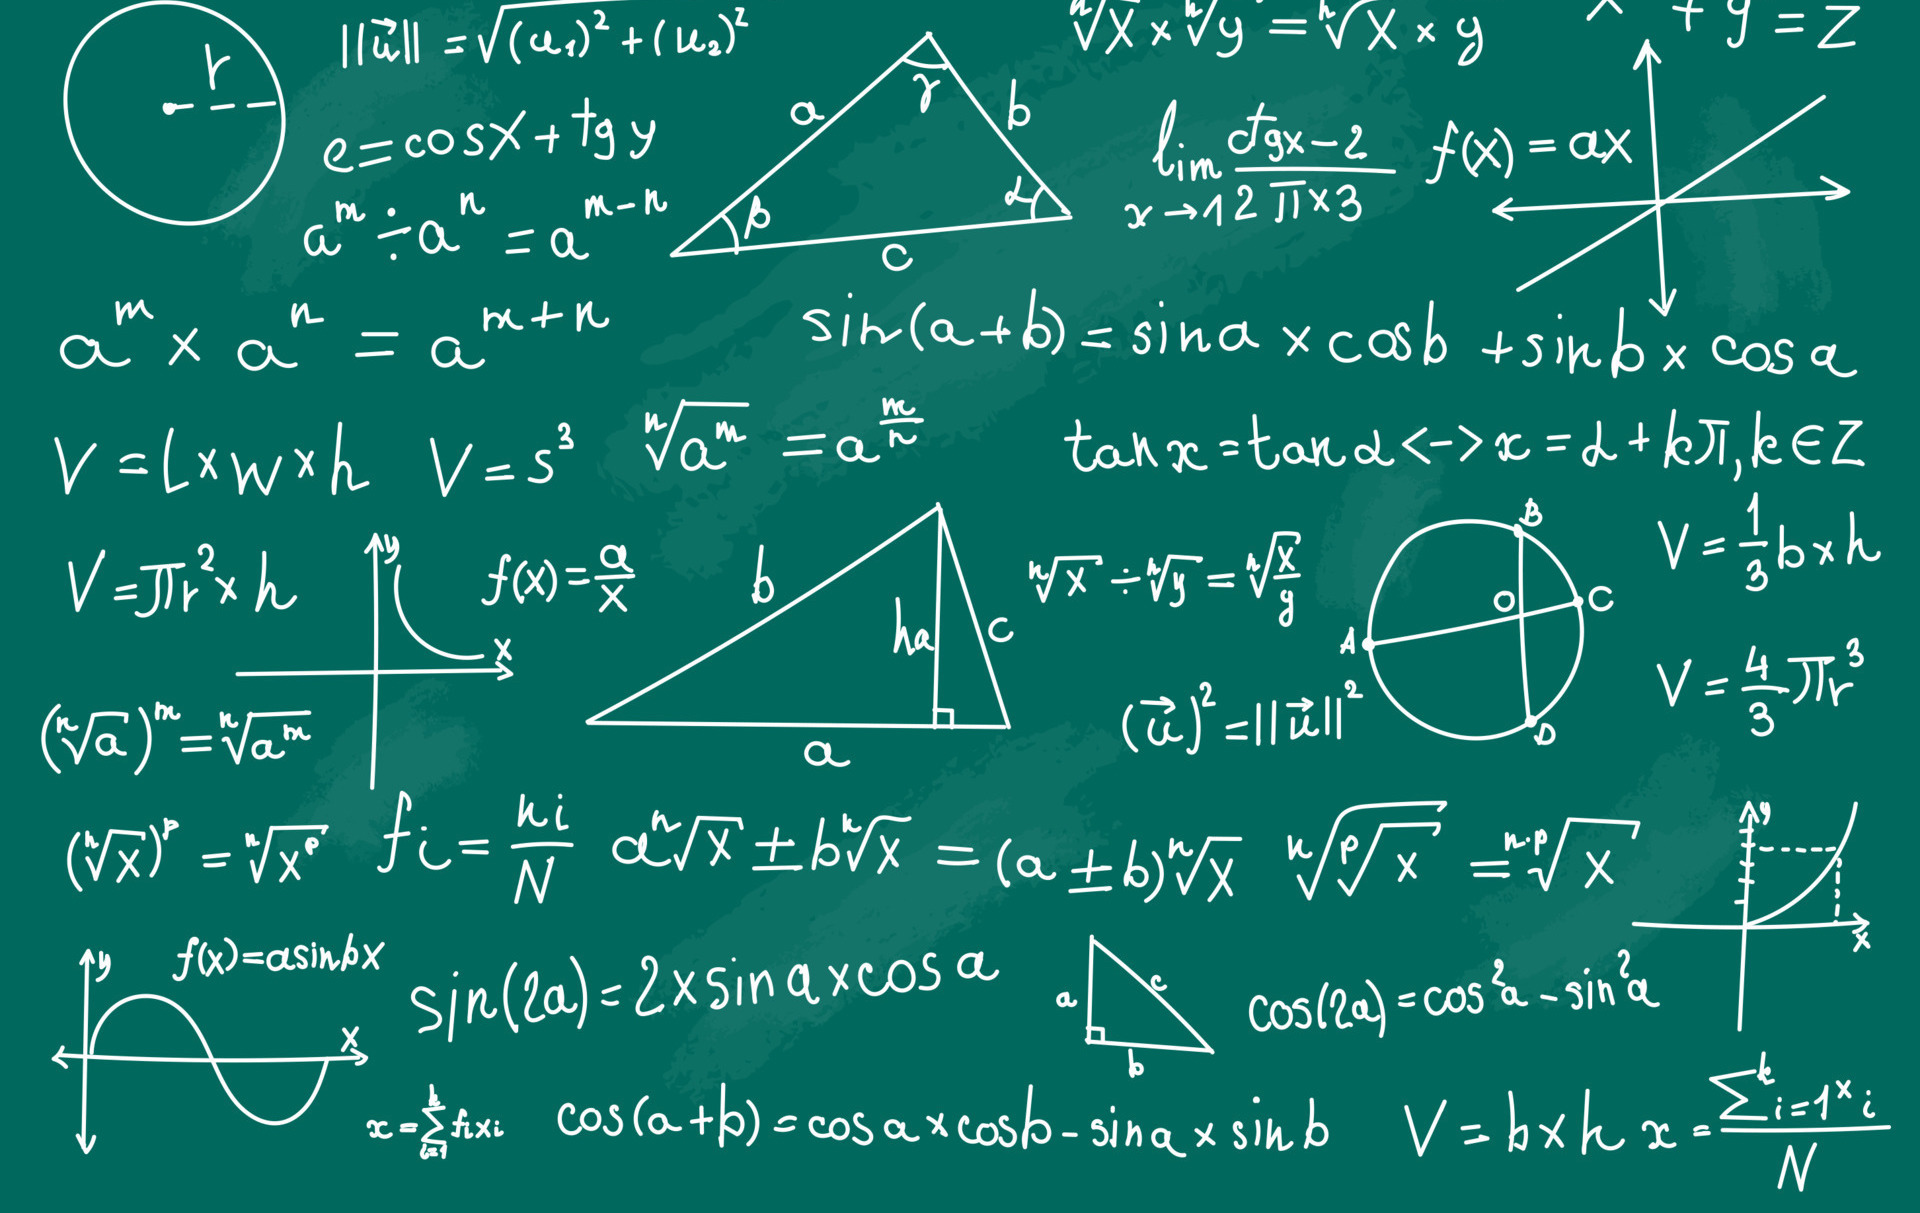 r
||u⃗|| = √(u₁)² + (u₂)²
ⁿ√x × ⁿ√y = ⁿ√x × y
+ y = Z
e = cosx + tg y
a γ b
β α
c
lim x→1 ctgx-2 / 2π×3
f(x) = ax
aᵐ ÷ aⁿ = aᵐ⁻ⁿ
aᵐ × aⁿ = aᵐ⁺ⁿ
sin(a+b) = sina × cosb + sinb × cosa
V = l×w×h
V = s³
ⁿ√aᵐ = a^(m/n)
tan x = tan α <-> x = α + kπ, k ∈ Z
V = πr² × h
y
x
f(x) = a/x
b
ha
c
a
ⁿ√x ÷ ⁿ√y = ⁿ√x/y
B
O C
A
D
V = 1/3 b×h
(ⁿ√a)ᵐ = ⁿ√aᵐ
(u⃗)² = ||u⃗||²
V = 4/3 πr³
(ⁿ√x)ᵖ = ⁿ√xᵖ
fi = ni/N
aⁿ√x ± bⁿ√x = (a ± b)ⁿ√x
ⁿ√ᵖ√x = ⁿ·ᵖ√x
y
x
y
x
f(x) = asinbx
sin(2a) = 2×sina×cosa
a
c
b
cos(2a) = cos²a - sin²a
x = Σᵏ i=1 fixi
cos(a+b) = cosa × cosb - sina × sinb
V = b×h
x = Σᵏ i=1 ˣi / N